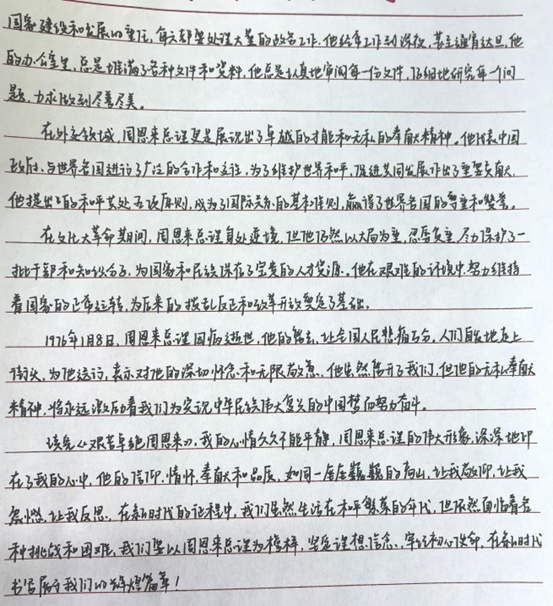 国家建设和发展的重任,每天都要处理大量的政务工作。他经常工作到深夜,甚至通宵达旦。他
的办公室里,总是堆满了各种文件和资料,他总是认真地审阅每一份文件,仔细地研究每一个问
题,力求做到尽善尽美。
在外交领域,周恩来总理更是展现出了卓越的才能和无私的奉献精神。他代表中国
政府,与世界各国进行了广泛的合作和交往,为了维护世界和平,促进共同发展作出了重要贡献。
他提出的和平共处五项原则,成为了国际关系的基本准则,赢得了世界各国的尊重和赞誉。
在文化大革命期间,周恩来总理身处逆境,但他仍然以大局为重,忍辱负重,尽力保护了一
批干部和知识分子,为国家和民族保存了宝贵的人才资源。他在艰难的环境中,努力维持
着国家的正常运转,为后来的拨乱反正和改革开放奠定了基础。
1976年1月8日,周恩来总理因病逝世,他的离去,让全国人民悲痛万分。人们自发地走上
街头,为他送行,表示对他的深切怀念和无限敬意。他虽然离开了我们,但他的无私奉献
精神,将永远激励着我们为实现中华民族伟大复兴的中国梦而努力奋斗。
读完《艰苦卓绝周恩来》,我的心情久久不能平静,周恩来总理的伟大形象,深深地印
在了我的心中,他的信仰、情怀、奉献和品质,如同一座座巍巍的高山,让我敬仰,让我
震撼,让我反思。在新时代的征程中,我们虽然生活在和平繁荣的年代,但依然面临着各
种挑战和困难,我们要以周恩来总理为榜样,坚定理想信念,牢记初心使命,在新时代
书写属于我们的辉煌篇章!